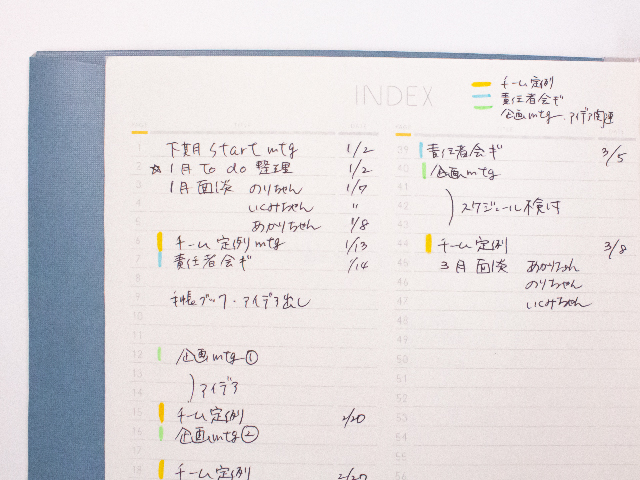 INDEX
チーム定例
責任者会ギ
企画mtg・アイデア関連
1 下期start mtg 1/2
2 ☆1月 To do 整理 1/2
3 1月 面談 のりちゃん 1/7
4 いくみちゃん 〃
5 あかりちゃん 1/8
6 チーム定例mtg 1/13
7 責任者会ギ 1/14
8
9 手帳ブック・アイデア出し
10
11
12 企画mtg①
13 )アイデア
14
15 チーム定例 2/20
16 企画mtg②
17
18 チーム定例 2/20
39 責任者会ギ 3/5
40 企画mtg
41
42 )スケジュール検討
43
44 チーム定例 3/8
45 3月 面談 あかりちゃん
46 のりちゃん
47 いくみちゃん
48
49
50
51
52
53
54
55
56